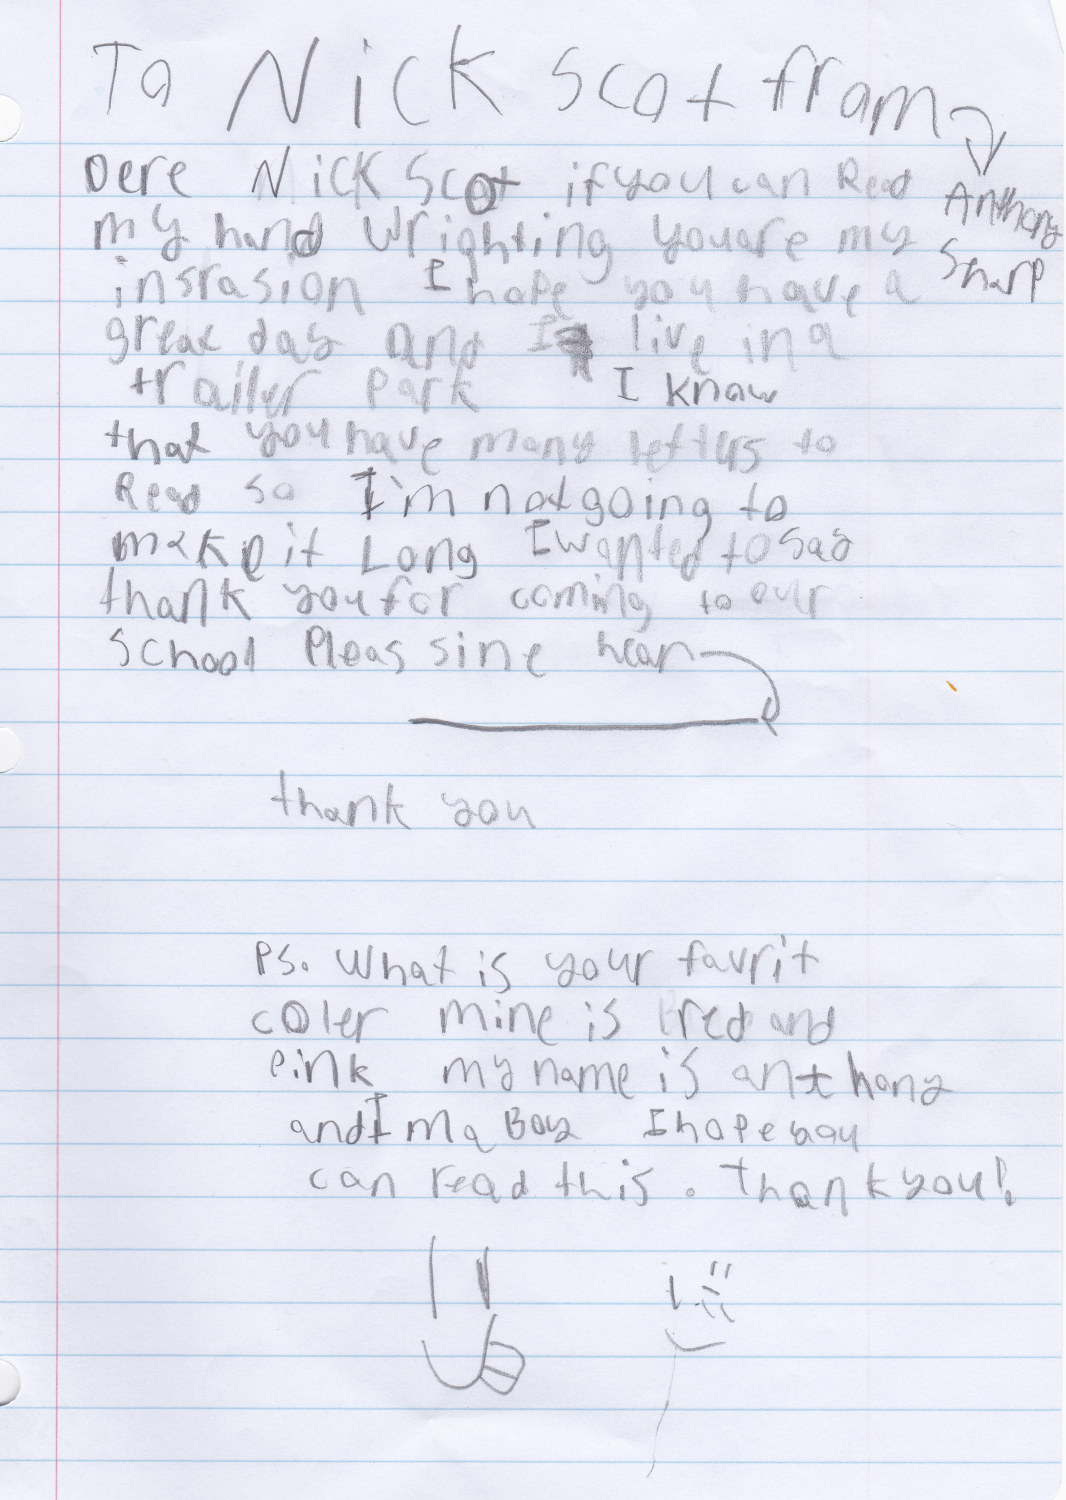 To Nick Scot from
Anthony
Sharp
Dere Nick Scot if you can Read
my hand Wrighting you are my
insrasion I hope you have a
great day and I live in a
trailer Park I know
that you have many letturs to
Read so I'm not going to
make it Long I wanted to say
thank you for coming to our
School Pleas sine hear
thank you
Ps. What is your favrit
coler mine is red and
Pink my name is anthony
and I m a Boy I hope you
can read this. Thank you!